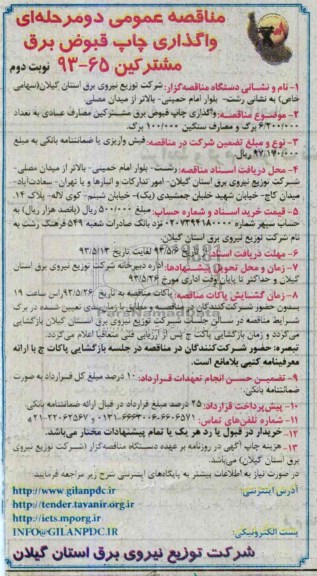 مناقصه عمومی دومرحله‌ای
واگذاری چاپ قبوض برق
مشترکین ۶۵-۹۳ نوبت دوم
۱- نام و نشانی دستگاه مناقصه‌گزار: شرکت توزیع نیروی برق استان گیلان (سهامی
خاص) به نشانی رشت- بلوار امام خمینی- بالاتر از میدان مصلی
۲- موضوع مناقصه: واگذاری چاپ قبوض برق مشترکین مصارف عادی به تعداد
۶/۲۰۰/۰۰۰ برگ و مصارف سنگین ۱۰۰/۰۰۰ برگ.
۳- نوع و مبلغ تضمین شرکت در مناقصه: فیش واریزی یا ضمانتنامه بانکی به مبلغ
۹۷/۱۹۰/۰۰۰ ریال.
۴- محل دریافت اسناد مناقصه: رشت- بلوار امام خمینی- بالاتر از میدان مصلی-
شرکت توزیع نیروی برق استان گیلان- امور تدارکات و انبارها و یا تهران- سعادت‌آباد-
میدان کاج- خیابان شهید خلیان جمشیدی (یک)- خیابان نسیم- کوی لاله- پلاک ۱۴.
۵- قیمت خرید اسناد و شماره حساب: مبلغ ۵۰۰/۰۰۰ ریال (پانصد هزار ریال) به
حساب سپهر شماره نزد بانک صادرات شعبه ۵۴۹ فرهنگ رشت به
نام شرکت توزیع نیروی برق استان گیلان.
۶- مهلت دریافت اسناد: از تاریخ ۹۳/۵/۶ لغایت تاریخ ۹۳/۵/۱۳
۷- زمان و محل تحویل پیشنهادها: اداره دبیرخانه شرکت توزیع نیروی برق استان
گیلان و حداکثر تا پایان وقت اداری مورخ ۹۳/۵/۲۶
۸- زمان گشایش پاکات مناقصه: پاکات مناقصه به تاریخ ۹۳/۵/۲۶ راس ساعت ۱۹
بدون حضور شرکت‌کنندگان در مناقصه و مطابق با زمانبندی تعیین شده در برگ
شرایط مناقصه در سالن جلسات شرکت توزیع نیروی برق استان گیلان بازگشایی
می‌گردد و زمان بازگشایی پاکت ج پس از ارزیابی فنی متعاقبا اعلام می‌گردد.
تبصره: حضور شرکت‌کنندگان در مناقصه در جلسه بازگشایی پاکات ج با ارائه
معرفینامه کتبی بلامانع است.
۹- تضمین حسن انجام تعهدات قرارداد: ۱۰ درصد مبلغ کل قرارداد به صورت
ضمانتنامه بانکی.
۱۰- پیش‌پرداخت قرارداد: ۲۵ درصد مبلغ قرارداد در قبال ارائه ضمانتنامه بانکی
۱۱- شماره تلفن‌های تماس:
۱۲- خریدار در قبول یا رد هر یک یا تمام پیشنهادات مختار می‌باشد.
۱۳- هزینه چاپ آگهی در روزنامه بر عهده دستگاه مناقصه‌گزار (شرکت توزیع نیروی
برق استان گیلان) می‌باشد.
در صورت نیاز به اطلاعات بیشتر به پایگاه‌های اینترنتی شرح زیر مراجعه فرمایید
آدرس اینترنتی: http://www.gilanpdc.ir
http://tender.tavanir.org.ir
http://iets.mporg.ir
پست الکترونیکی: INFO@GILANPDC.IR
شرکت توزیع نیروی برق استان گیلان